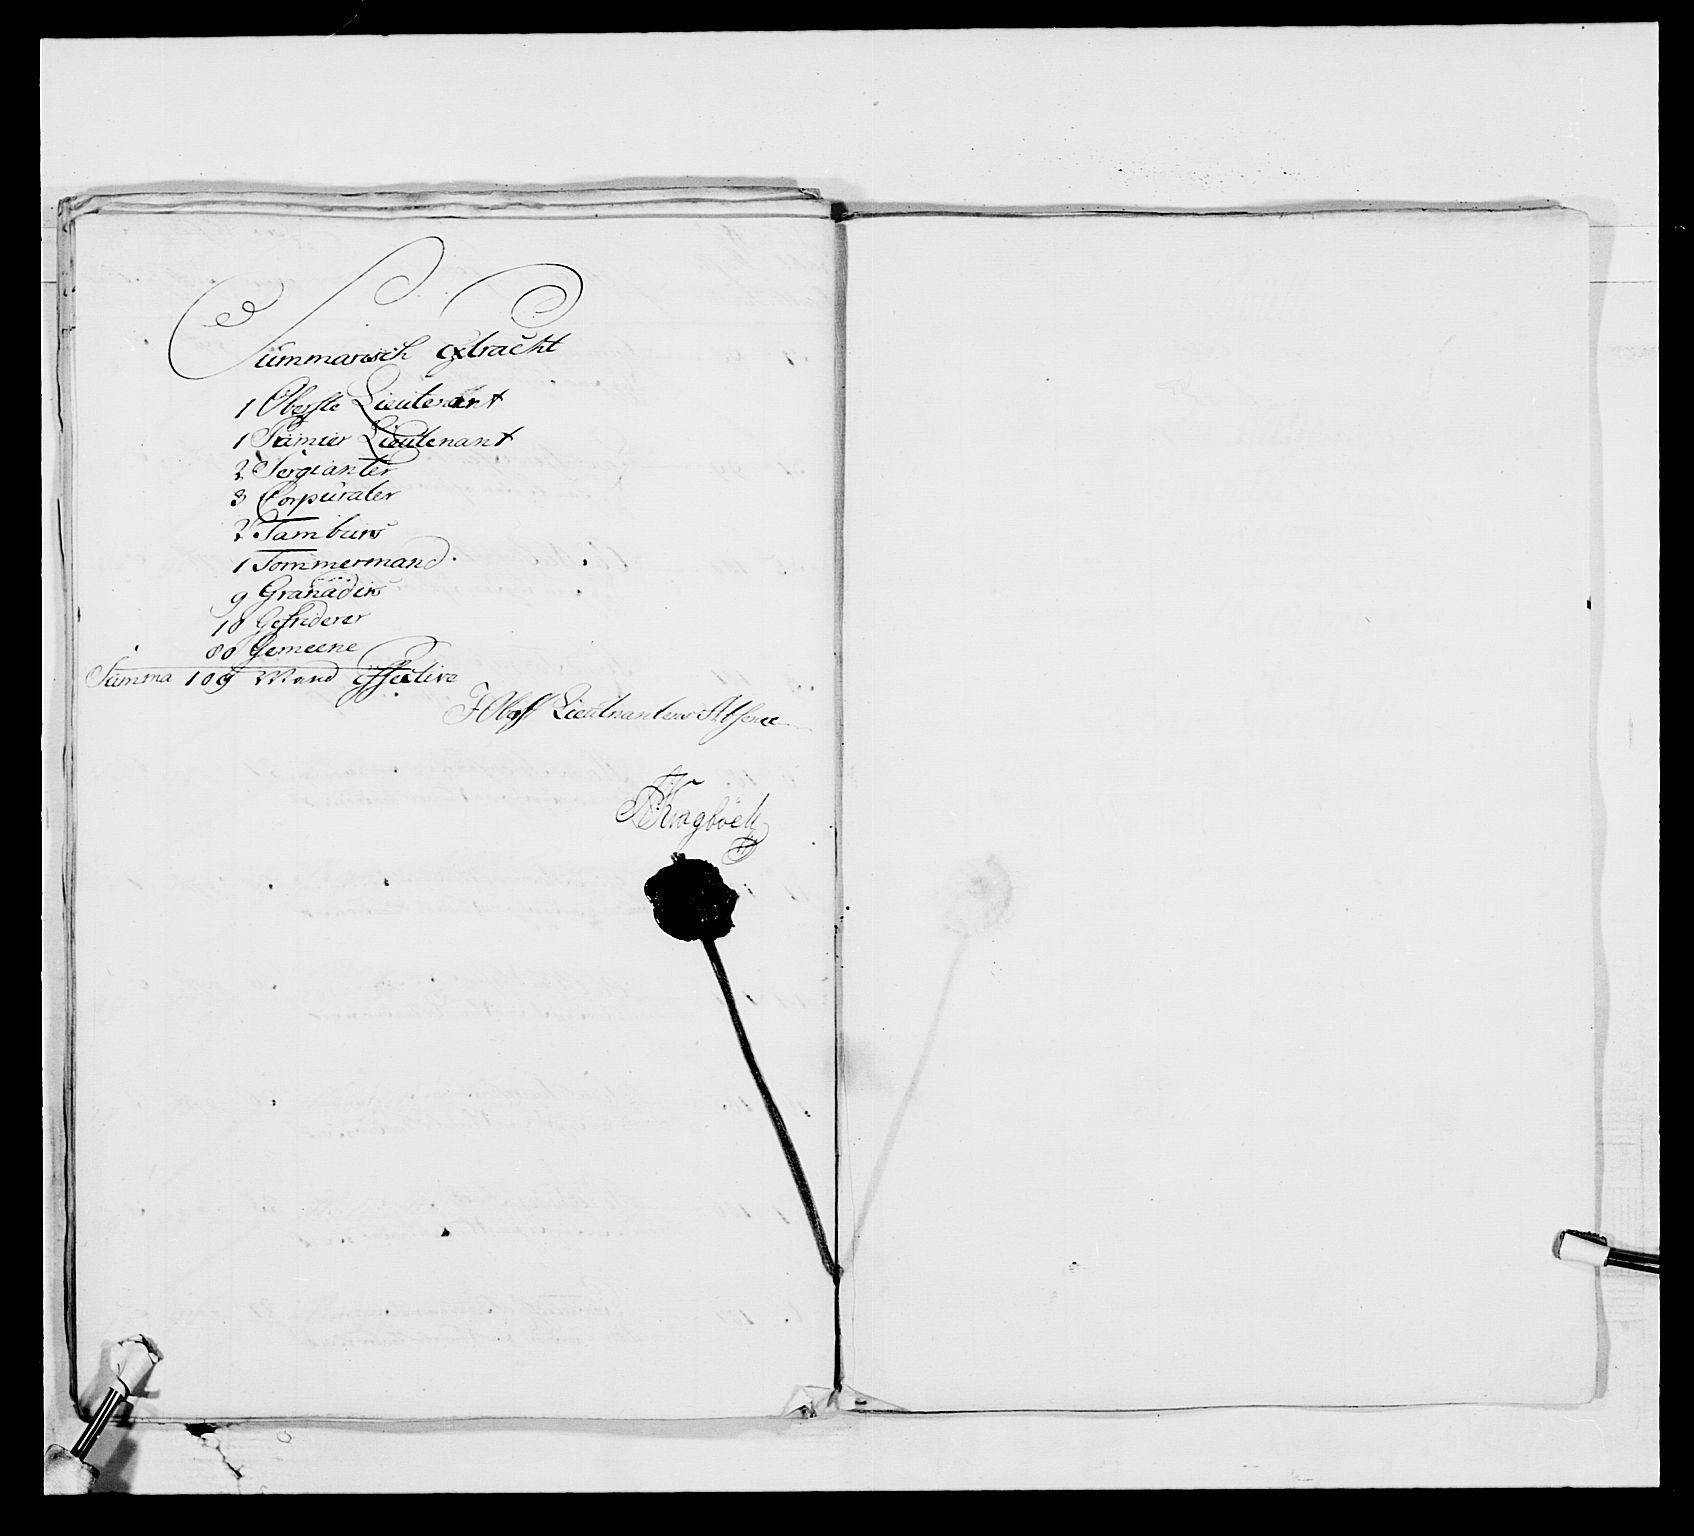 Summarisch Extracht
1 Oberste Lieutenant
1 Primier Lieutenant
2 Sergianter
3 Corpuraler
2 Tamburs
1 Tommermand
9 Granadirs
10 Gefriderer
80 Gemeene
Summa 109 Mand Effective
I Obst Lieutnantens Absence
Kragböell